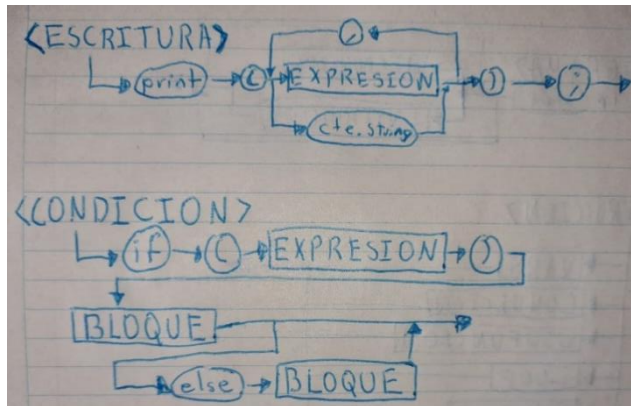 <ESCRITURA>
,
print ( EXPRESION ) ;
cte.string
<CONDICION>
if ( EXPRESION )
BLOQUE
else BLOQUE